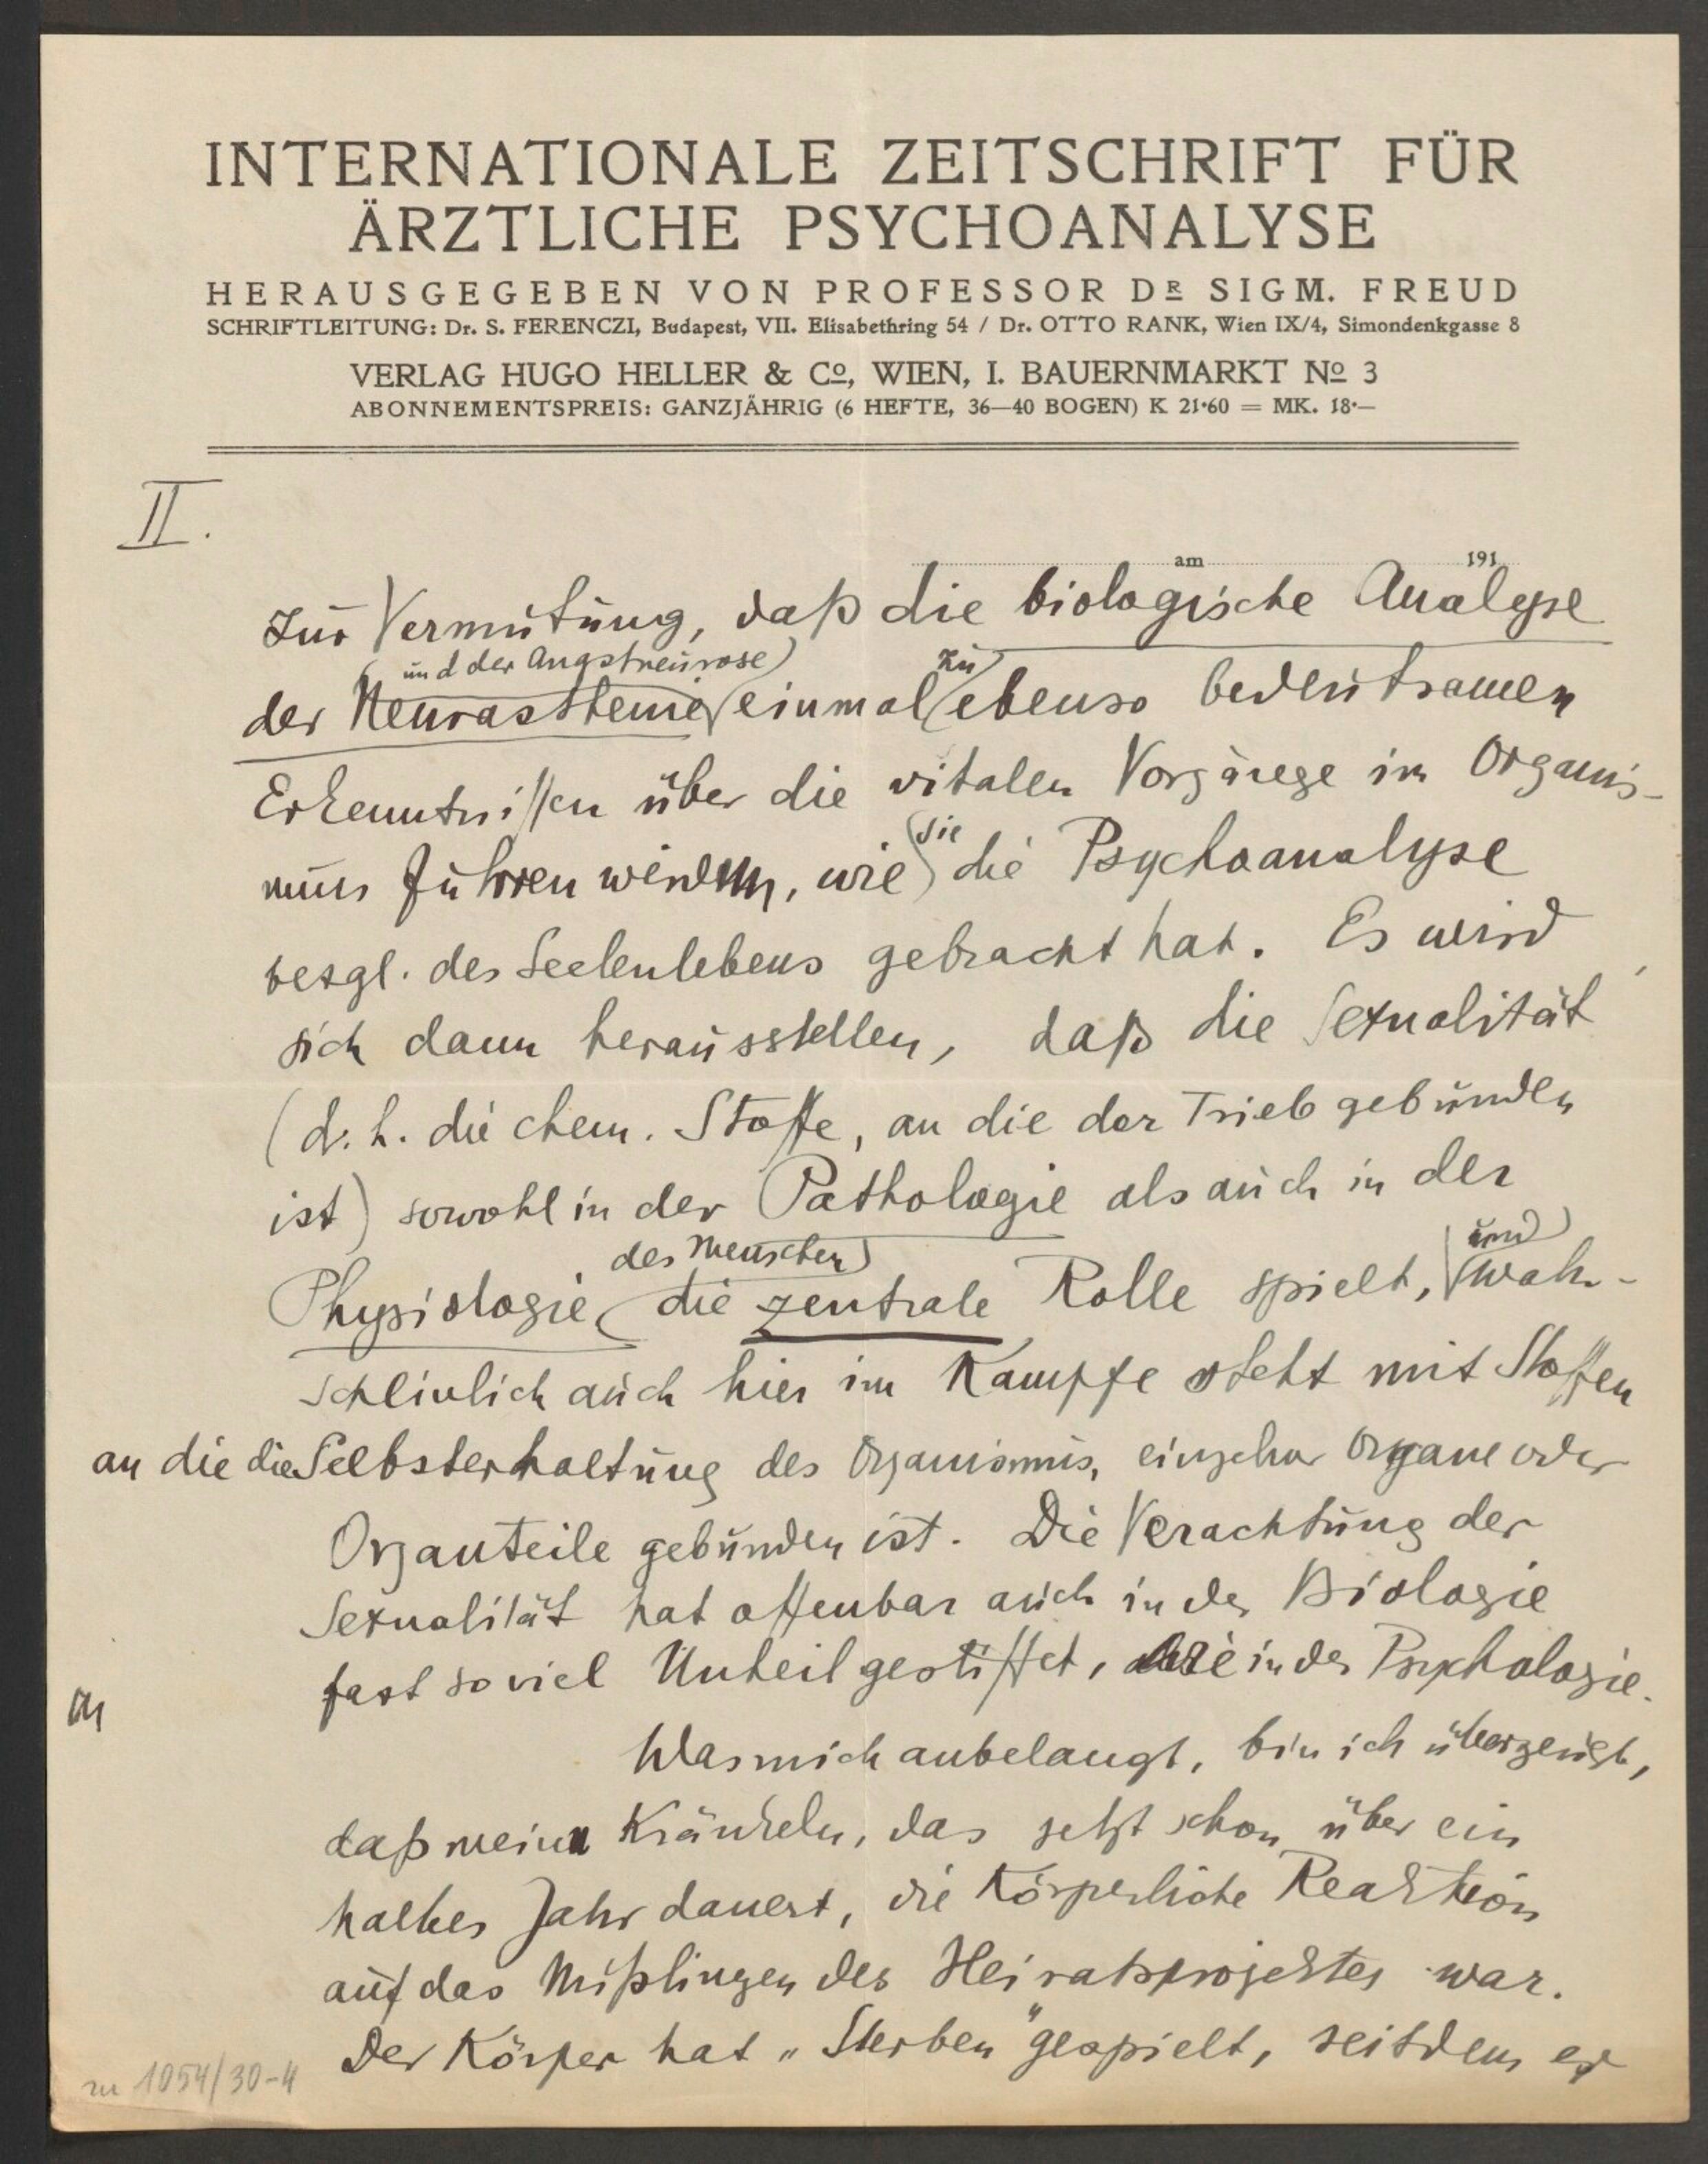 INTERNATIONALE ZEITSCHRIFT FÜR
ÄRZTLICHE PSYCHOANALYSE
HERAUSGEGEBEN VON PROFESSOR DR SIGM. FREUD
SCHRIFTLEITUNG: Dr. S. FERENCZI, Budapest, VII. Elisabethring 54 / Dr. OTTO RANK, Wien IX/4, Simondenkgasse 8
VERLAG HUGO HELLER & Co, WIEN, I. BAUERNMARKT No 3
ABONNEMENTSPREIS: GANZJÄHRIG (6 HEFTE, 36—40 BOGEN) K 21·60 = MK. 18·—
II.
am 191
zur Vermutung, daß die biologische Analyse
und der Angstneurose zu
der Neurasthenie einmal ebenso bedeutsamen
Erkenntnissen über die vitalen Vorgänge im Organis-
sie
mus führen werden, wie die Psychoanalyse
bezgl. des Seelenlebens gebracht hat. Es wird
sich dann herausstellen, daß die Sexualität
(d. h. die chem. Stoffe, an die der Trieb gebunden
ist) sowohl in der Pathologie als auch in der
des Menschen und
Physiologie die zentrale Rolle spielt, wahr-
scheinlich auch hier im Kampfe steht mit Stoffen
an die die Selbsterhaltung des Organismus, einzelner Organe oder
Organteile gebunden ist. Die Verachtung der
Sexualität hat offenbar auch in der Biologie
fast so viel Unheil gestiftet, wie in der Psychologie.
Was mich anbelangt, bin ich überzeugt,
daß mein Kränkeln, das jetzt schon über ein
halbes Jahr dauert, die körperliche Reaktion
auf das Mißlingen des Heiratsprojektes war.
Der Körper hat „Sterben" gespielt, seitdem er
zu 1054/30-4